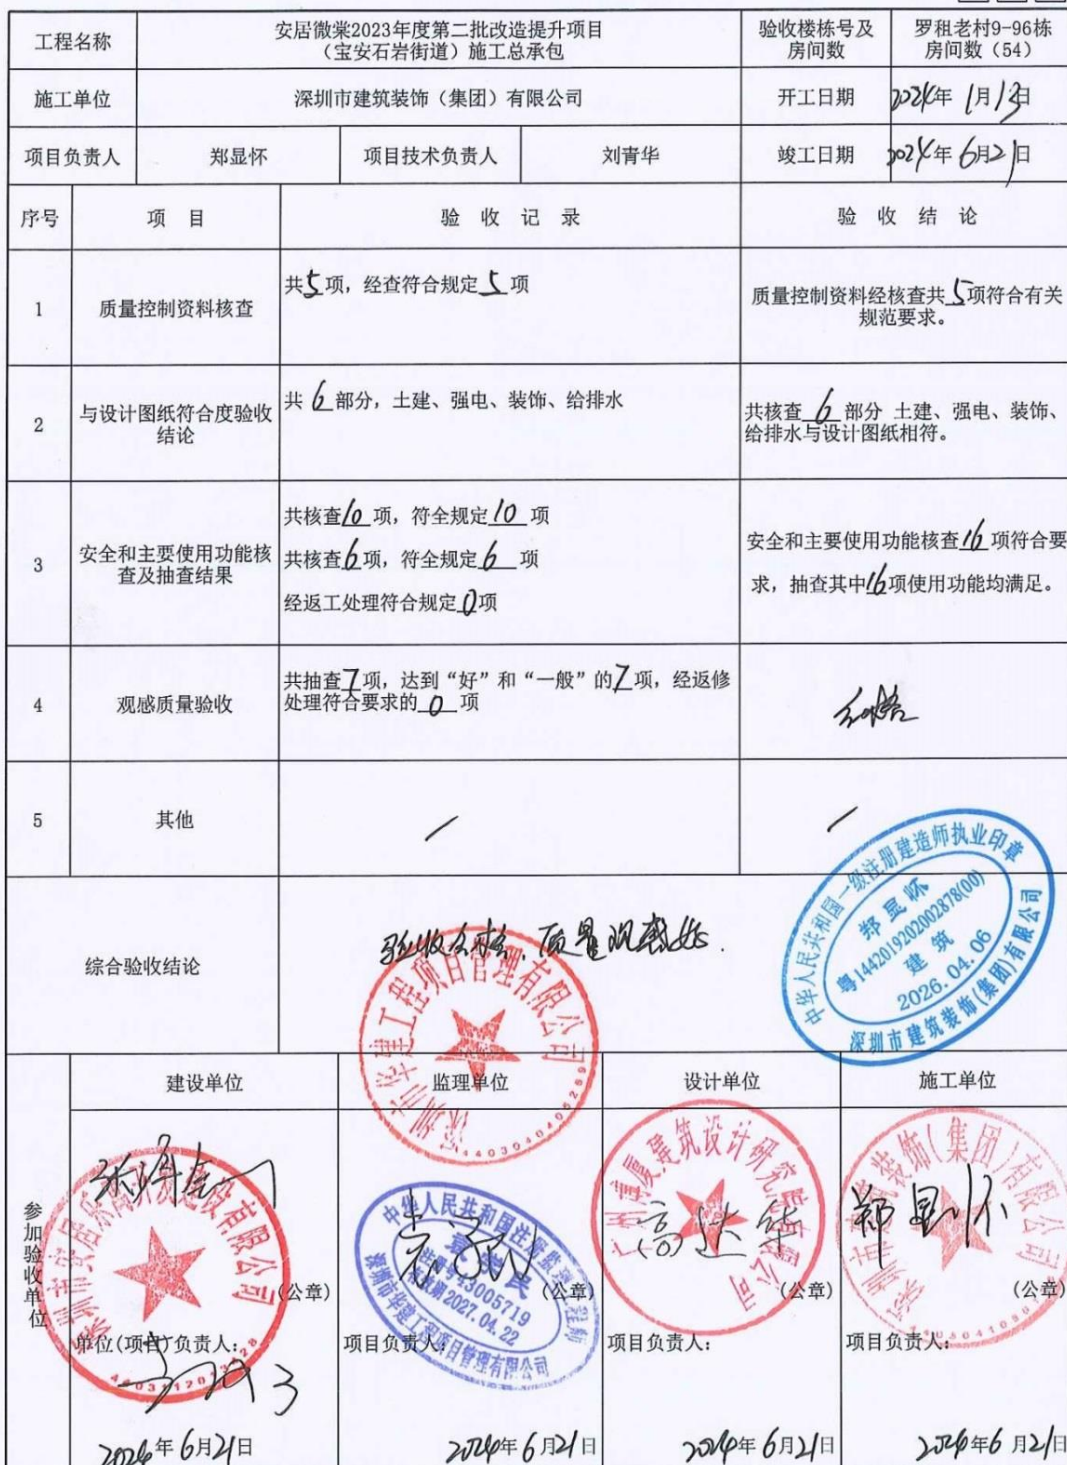 工程名称
安居微棠2023年度第二批改造提升项目
（宝安石岩街道）施工总承包
验收楼栋号及
房间数
罗租老村9-96栋
房间数（54）
施工单位
深圳市建筑装饰（集团）有限公司
开工日期
2024年 1月13日
项目负责人
郑显怀
项目技术负责人
刘青华
竣工日期
2024年 6月21日
序号
项 目
验 收 记 录
验 收 结 论
1
质量控制资料核查
共5项，经查符合规定5项
质量控制资料经核查共5项符合有关
规范要求。
2
与设计图纸符合度验收
结论
共6部分，土建、强电、装饰、给排水
共核查6部分 土建、强电、装饰、
给排水与设计图纸相符。
3
安全和主要使用功能核
查及抽查结果
共核查10项，符全规定10项
共核查6项，符全规定6项
经返工处理符合规定0项
安全和主要使用功能核查16项符合要
求，抽查其中16项使用功能均满足。
4
观感质量验收
共抽查7项，达到“好”和“一般”的7项，经返修
处理符合要求的0项
合格
5
其他
/
/
综合验收结论
验收合格，质量观感好.
中华人民共和国一级注册建造师执业印章
郑显怀
粤1442019202002878(00)
建筑
2026.04.06
深圳市建筑装饰(集团)有限公司
深圳市华建工程项目管理有限公司
参加验收单位
建设单位
监理单位
设计单位
施工单位
(公章)
(公章)
(公章)
(公章)
中华人民共和国注册监理工程师
43005719
2027.04.22
深圳市华建工程项目管理有限公司
郑显怀
单位(项目)负责人：
项目负责人：
项目负责人：
项目负责人：
2024年6月21日
2024年6月21日
2024年6月21日
2024年6月21日